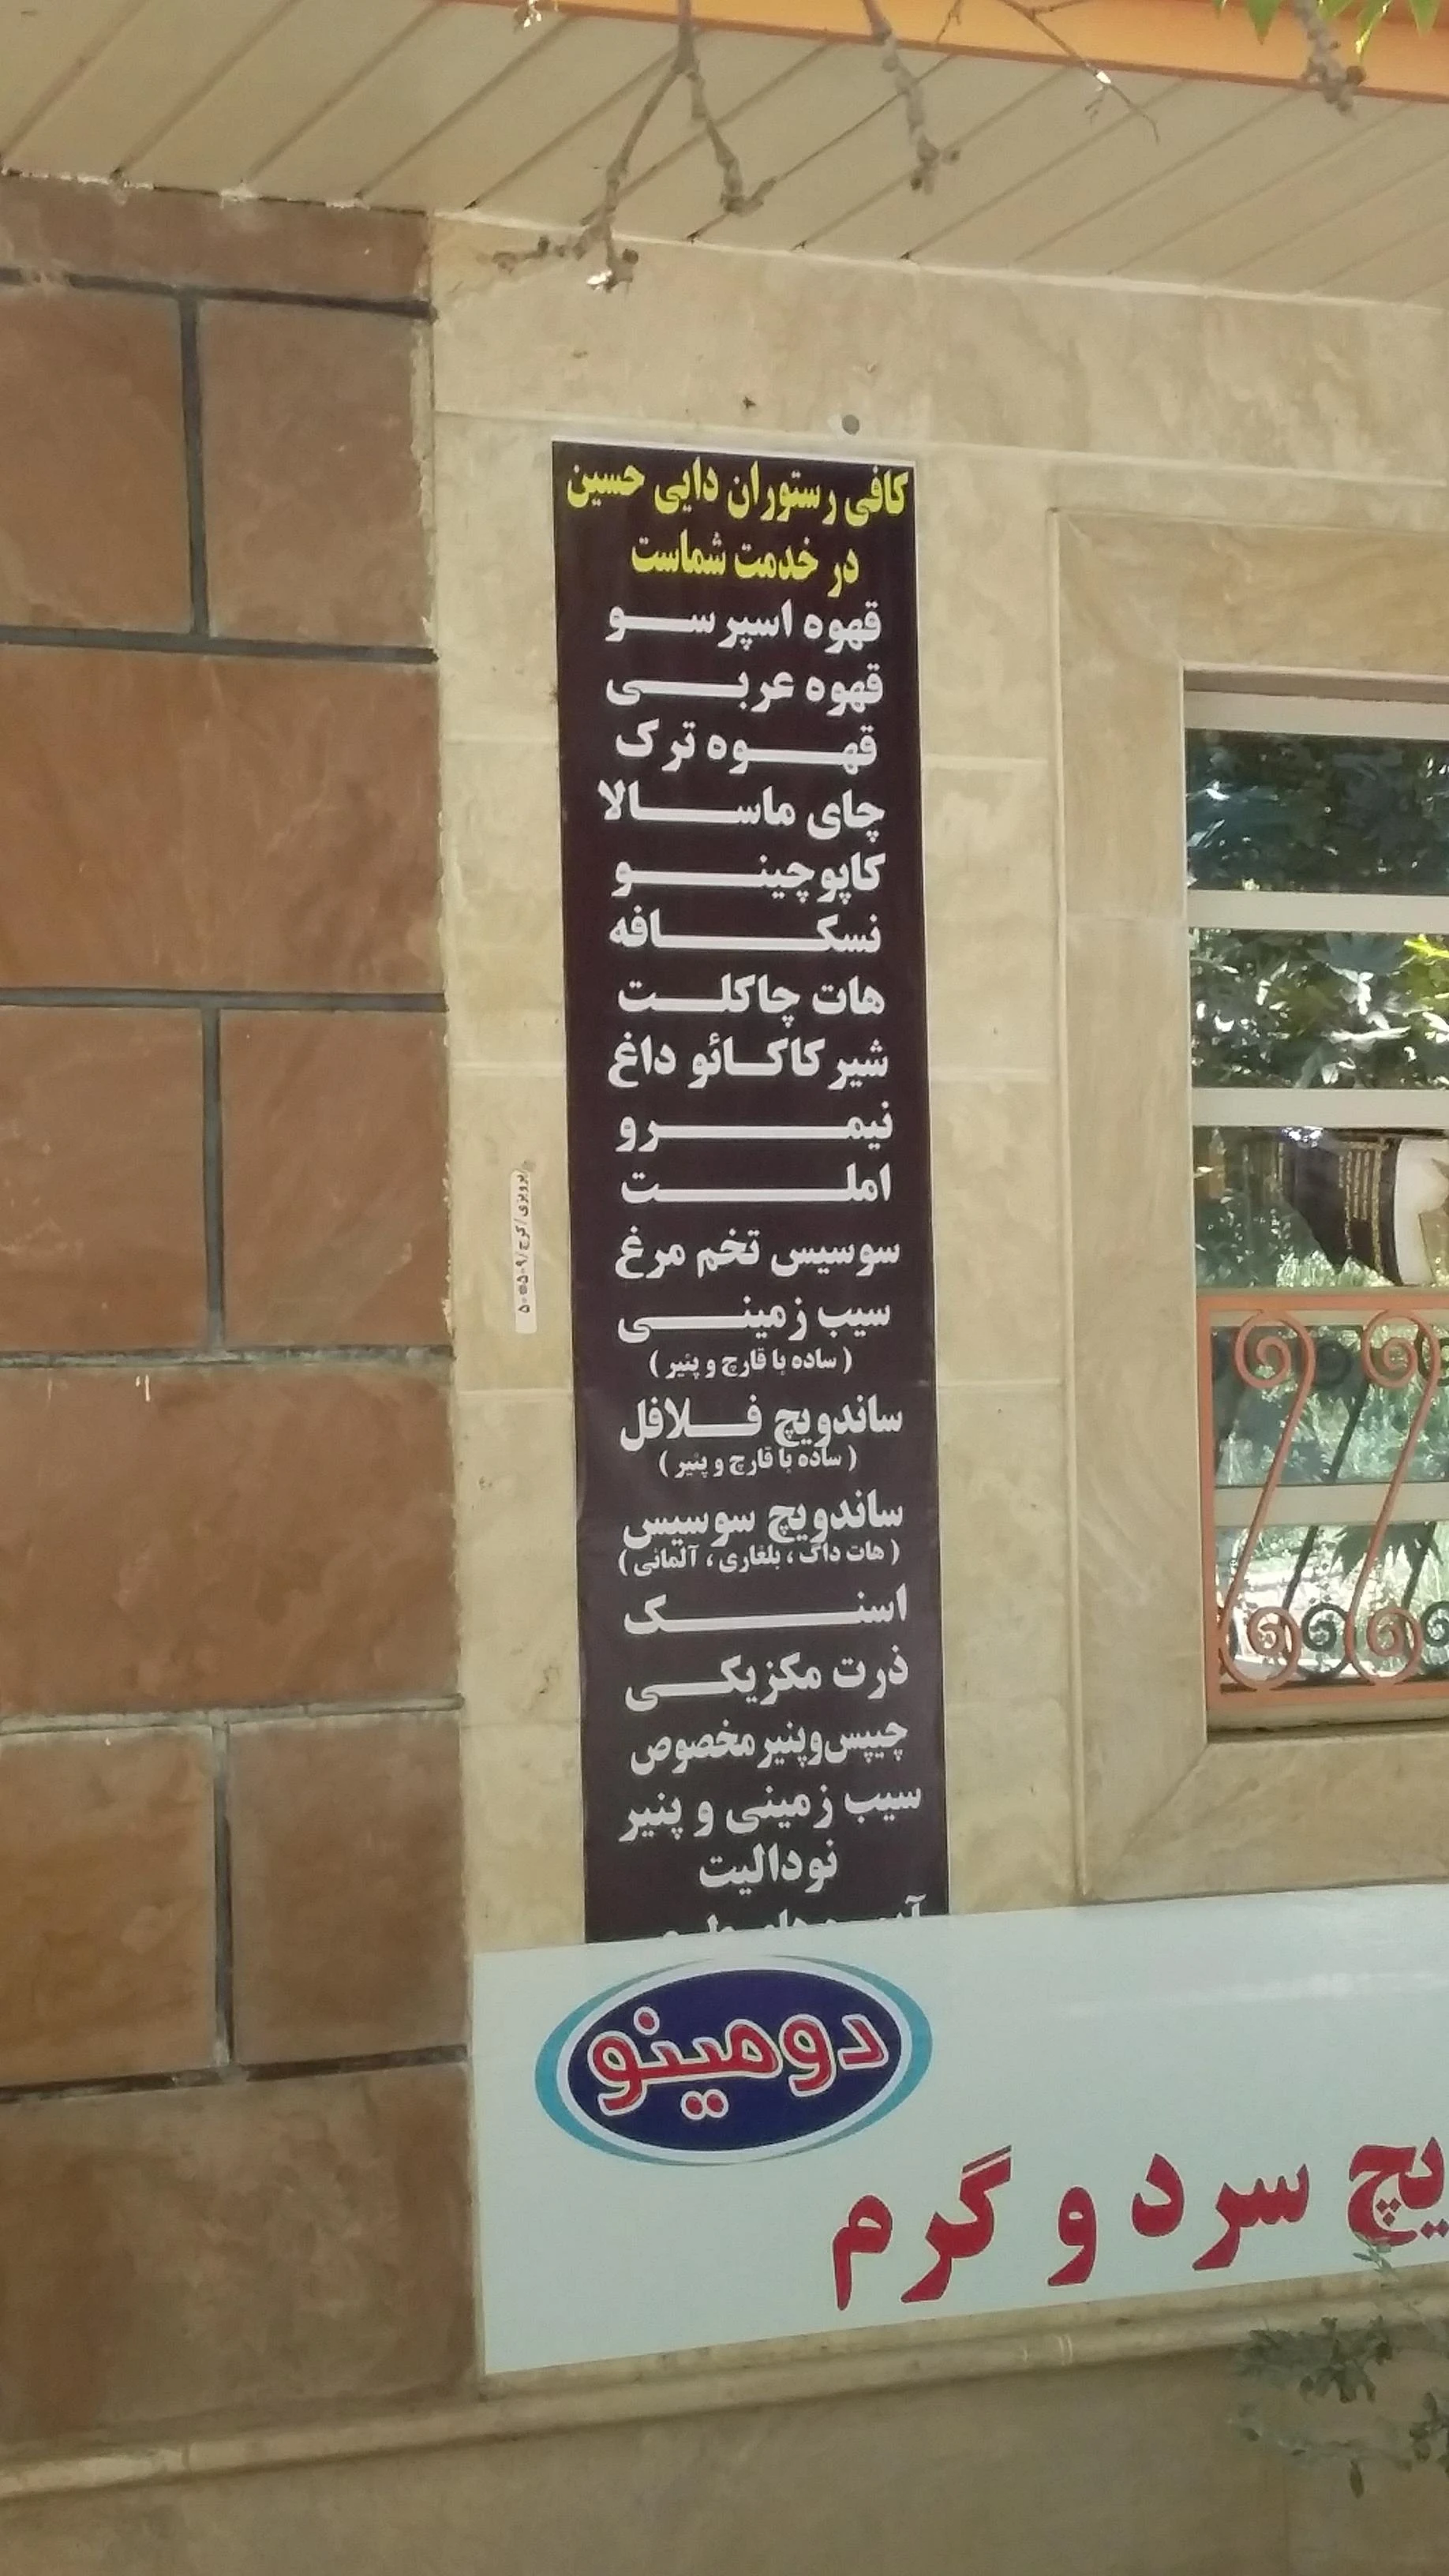 کافی رستوران دایی حسین
در خدمت شماست
قهوه اسپرسو
قهوه عربی
قهوه ترک
چای ماسالا
کاپوچینو
نسکافه
هات چاکلت
شیرکاکائو داغ
نیمرو
املت
سوسیس تخم مرغ
سیب زمینی
( ساده با قارچ و پنیر )
ساندویچ فلافل
( ساده با قارچ و پنیر )
ساندویچ سوسیس
( هات داگ ، بلغاری ، آلمانی )
اسنک
ذرت مکزیکی
چیپس‌وپنیرمخصوص
سیب زمینی و پنیر
نودالیت
دومینو
یچ سرد و گرم